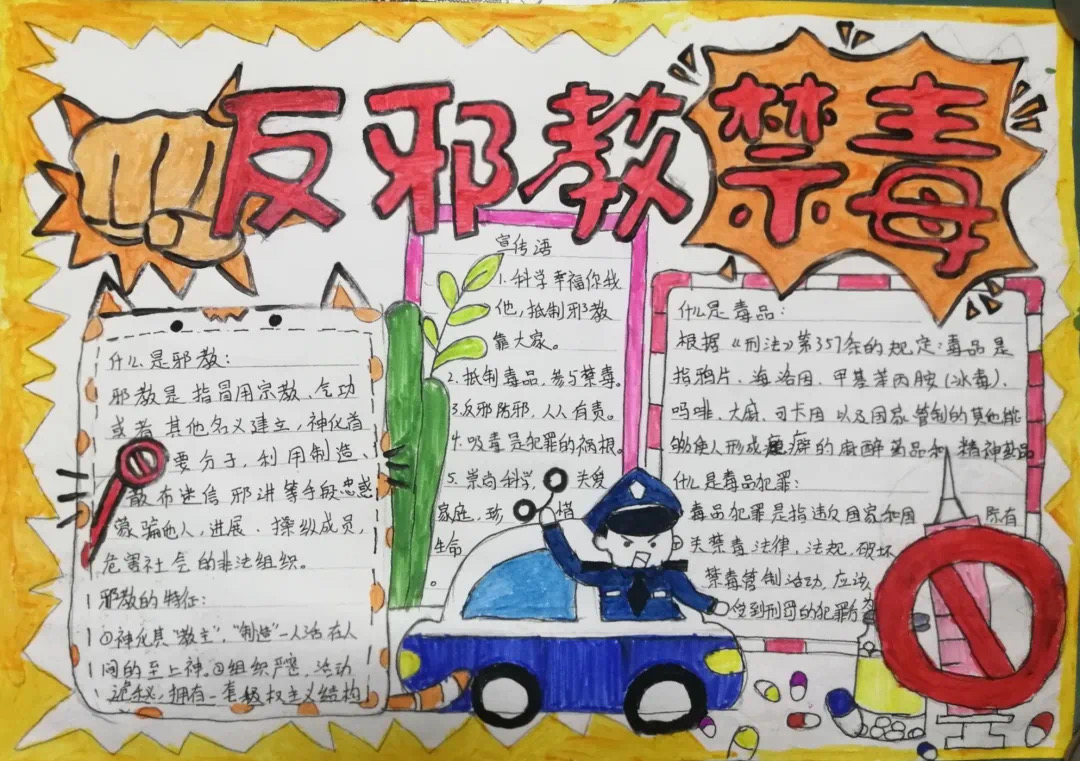 反邪教禁毒
什么是邪教:
邪教是指冒用宗教、气功
或者其他名义建立,神化首
要分子,利用制造、
散布迷信邪讲等手段忠惑
蒙骗他人,进展、操纵成员,
危害社会的非法组织。
邪教的特征:
①神化其“教主”,“制造”一人活在人
间的至上神。②组织严密,活动
诡秘,拥有一套极权主义结构
宣传语
1.科学幸福你我
他,抵制邪教
靠大家。
2.抵制毒品,参与禁毒。
3.反邪防邪,人人有责。
4.吸毒是犯罪的祸根。
5.崇尚科学 关爱
家庭,珍惜
生命。
什么是毒品:
根据《刑法》第357条的规定:毒品是
指鸦片、海洛因、甲基苯丙胺(冰毒)、
吗啡、大麻、可卡因以及国家管制的其他能
够使人形成瘾癖的麻醉药品和精神药品
什么是毒品犯罪:
毒品犯罪是指违反国家和国际有
关禁毒法律,法规,破坏
禁毒管制活动,应该
受到刑罚的犯罪行为